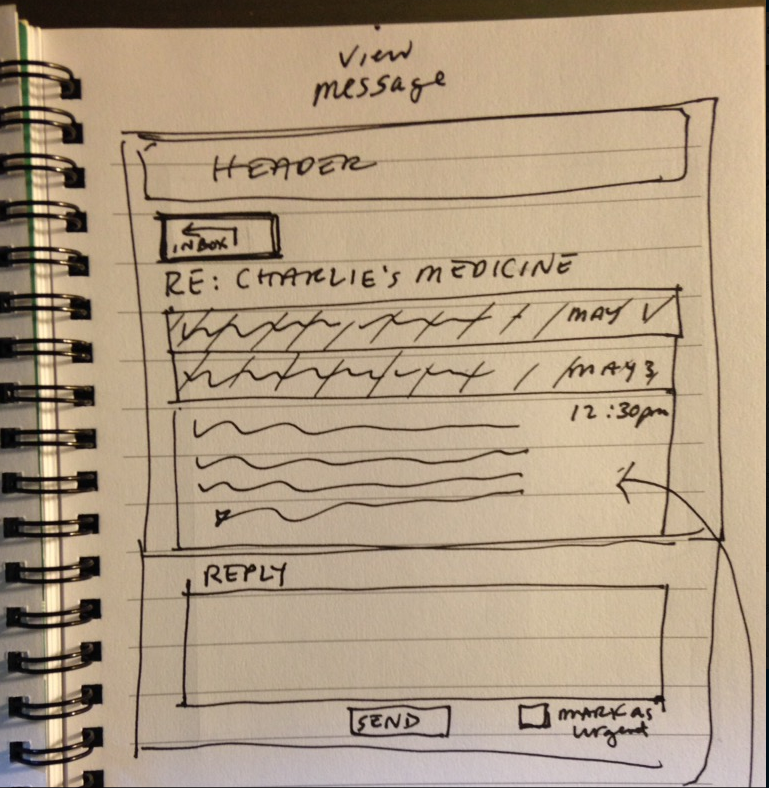 View
message
HEADER
INBOX
RE: CHARLIE'S MEDICINE
MAY 1
MAY 3
12:30pm
REPLY
SEND
MARK as
urgent